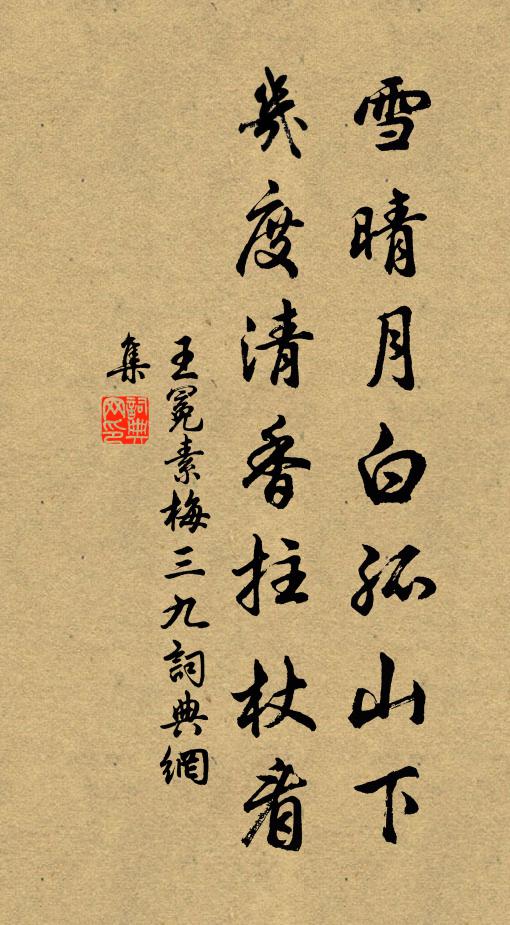 雪晴月白孤山下
幾度清香拄杖看
王冕素梅三九詞典網
集
詞典網印